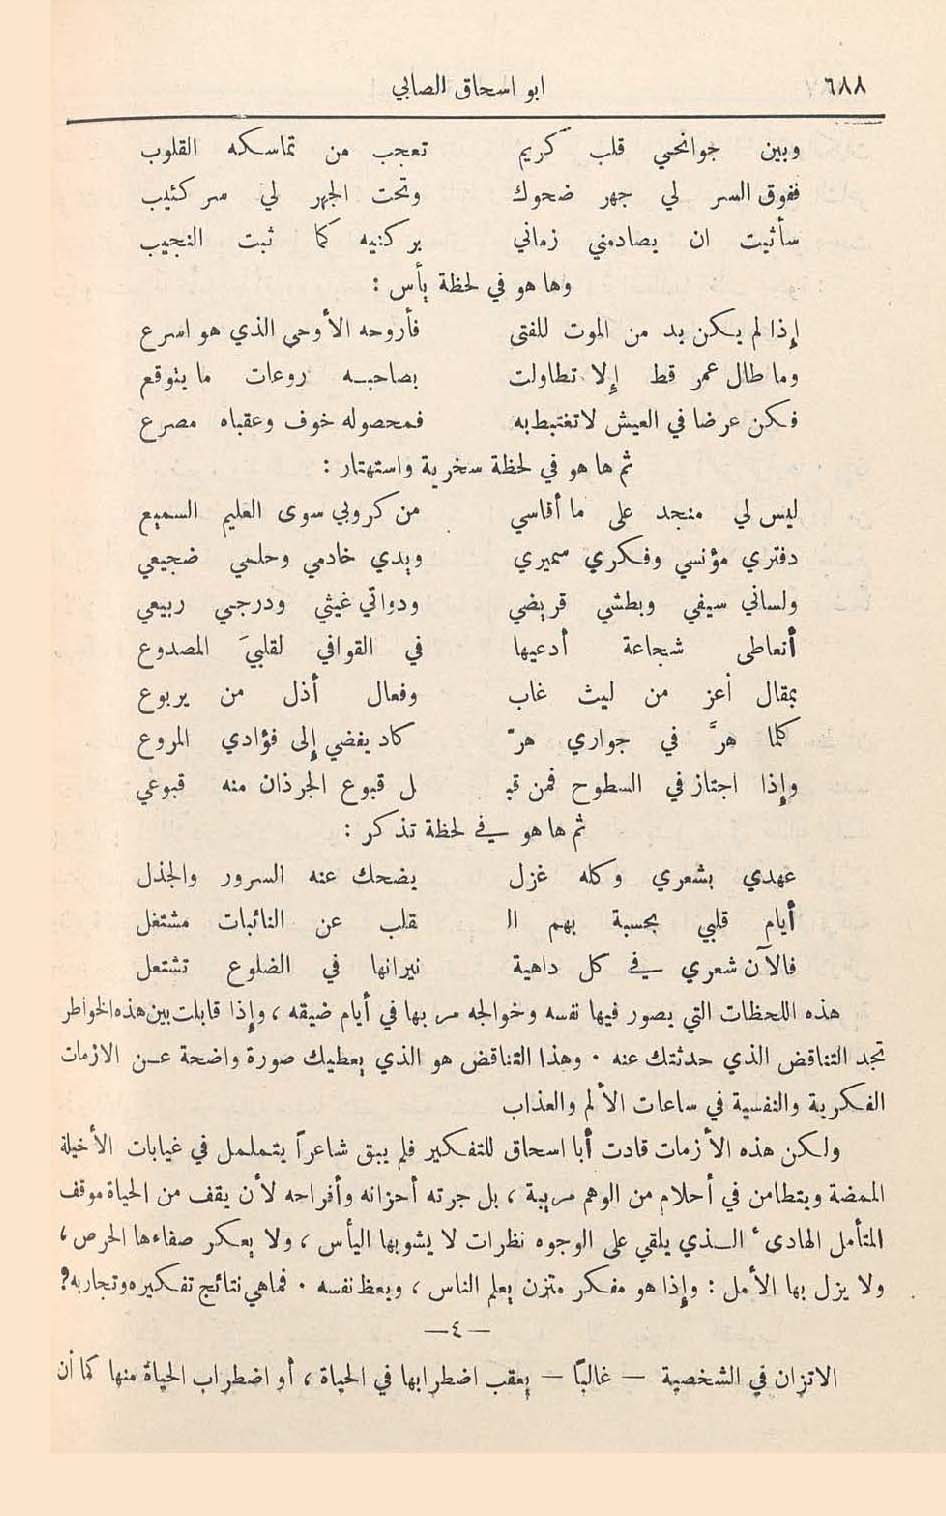 ٦٨٨ ابو اسحاق الصابي
وبين جوانحي قلب كريم تعجب من تماسكه القلوب
ففوق السر لي جهر ضحوك وتحت الجهر لي سر كئيب
سأثبت ان يصادمني زماني بركنيه كما ثبت النجيب
وها هو في لحظة يأس :
إذا لم يكن بد من الموت للفتى فأروحه الأوحى الذي هو اسرع
وما طال عمر قط إلا تطاولت بصاحبه روعات ما يتوقع
فكن عرضا في العيش لا تغتبط به فمحصوله خوف وعقباه مصرع
ثم ها هو في لحظة سخرية واستهتار :
ليس لي منجد على ما أقاسي من كروبي سوى العليم السميع
دفتري مؤنسي وفكري سميري ويدي خادمي وحلمي ضجيعي
ولساني سيفي وبطشي قريضي ودواتي غيثي ودرجي ربيعي
أتعاطى شجاعة أدعيها في القوافي لقلبيَ المصدوع
بمقال أعز من ليث غاب وفعال أذل من يربوع
كلما هرَّ في جواري هرّ كاد يفضي إلى فؤادي المروع
وإذا اجتاز في السطوح فمن قبـ ـل قبوع الجرذان منه قبوعي
ثم ها هو في لحظة تذكر :
عهدي بشعري وكله غزل يضحك عنه السرور والجذل
أيام قلبي بحسبة بهم ال قلب عن النائبات مشتغل
فالآن شعري في كل داهية نيرانها في الضلوع تشتعل
هذه اللحظات التي يصور فيها نفسه وخوالجه مر بها في أيام ضيقه ، وإذا قابلت بين هذه الخواطر
تجد التناقض الذي حدثتك عنه . وهذا التناقض هو الذي يعطيك صورة واضحة عن الازمات
الفكرية والنفسية في ساعات الألم والعذاب
ولكن هذه الأزمات قادت أبا اسحاق للتفكير فلم يبق شاعراً يتململ في غيابات الأخيلة
الممضة ويتطامن في أحلام من الوهم مريبة ، بل جرته أحزانه وأفراحه لأن يقف من الحياة موقف
المتأمل الهادىء الـذي يلقي على الوجوه نظرات لا يشوبها اليأس ، ولا يعكر صفاءها الحرص ،
ولا يزل بها الأمل : وإذا هو مفكر متزن يعلم الناس ، ويعظ نفسه . فما هي نتائج تفكيره وتجاربه ؟
— ٤ —
الاتزان في الشخصية — غالباً — يعقب اضطرابها في الحياة ، أو اضطراب الحياة منها كما أن